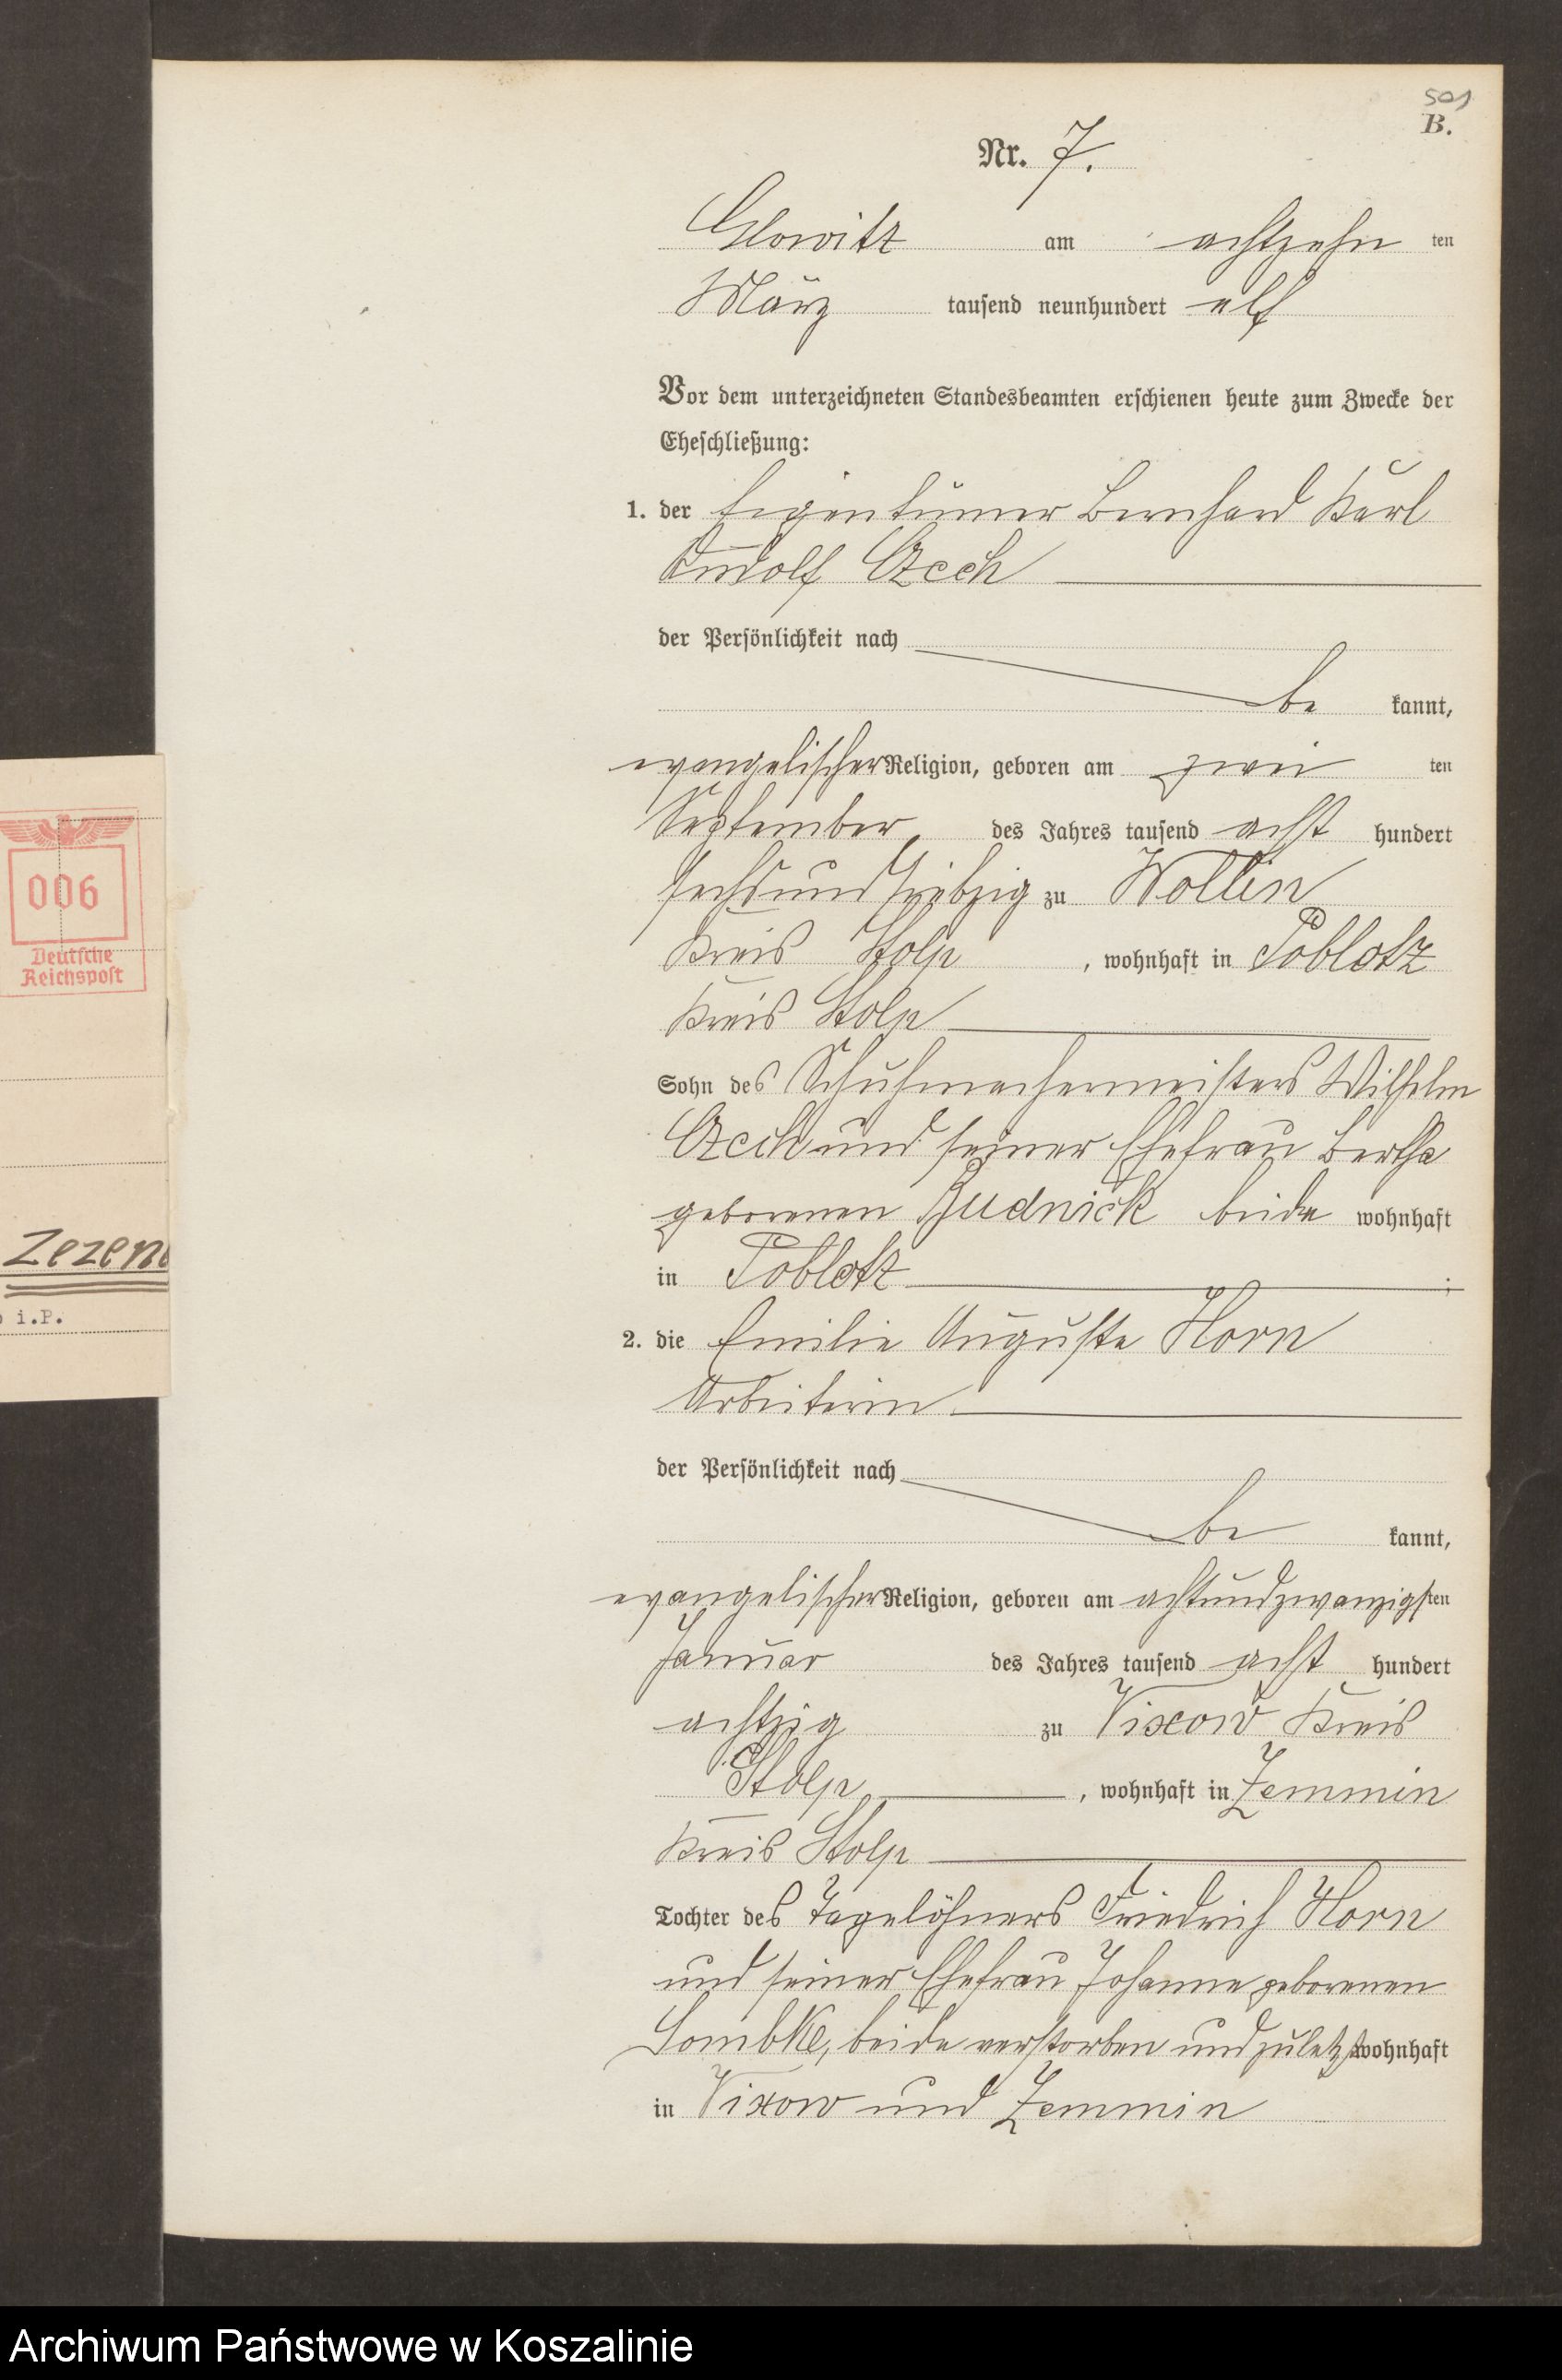 501
B.
Nr. 7.
Glowitz am achtzehn ten
März tausend neunhundert elf
Vor dem unterzeichneten Standesbeamten erschienen heute zum Zwecke der
Eheschließung:
1. der Eigentümer Bernhard Karl
Rudolf Czech
der Persönlichkeit nach
be kannt,
evangelischer Religion, geboren am zwei ten
September des Jahres tausend acht hundert
sechsundsiebzig zu Wollin
Kreis Stolp, wohnhaft in Poblotz
Kreis Stolp
Sohn des Schuhmachermeisters Wilhelm
Czech und seiner Ehefrau Bertha
geborenen Budnick beide wohnhaft
in Poblotz ;
2. die Emilie Auguste Horn
Arbeiterin
der Persönlichkeit nach
be kannt,
evangelischer Religion, geboren am achtundzwanzigsten
Januar des Jahres tausend acht hundert
achtzig zu Vixow Kreis
Stolp, wohnhaft in Zemmin
Kreis Stolp
Tochter des Tagelöhners Friedrich Horn
und seiner Ehefrau Johanne geborenen
Lombke, beide verstorben und zuletzt wohnhaft
in Vixow und Zemmin
006
Deutsche
Reichspost
Zezen
i.P.
Archiwum Państwowe w Koszalinie